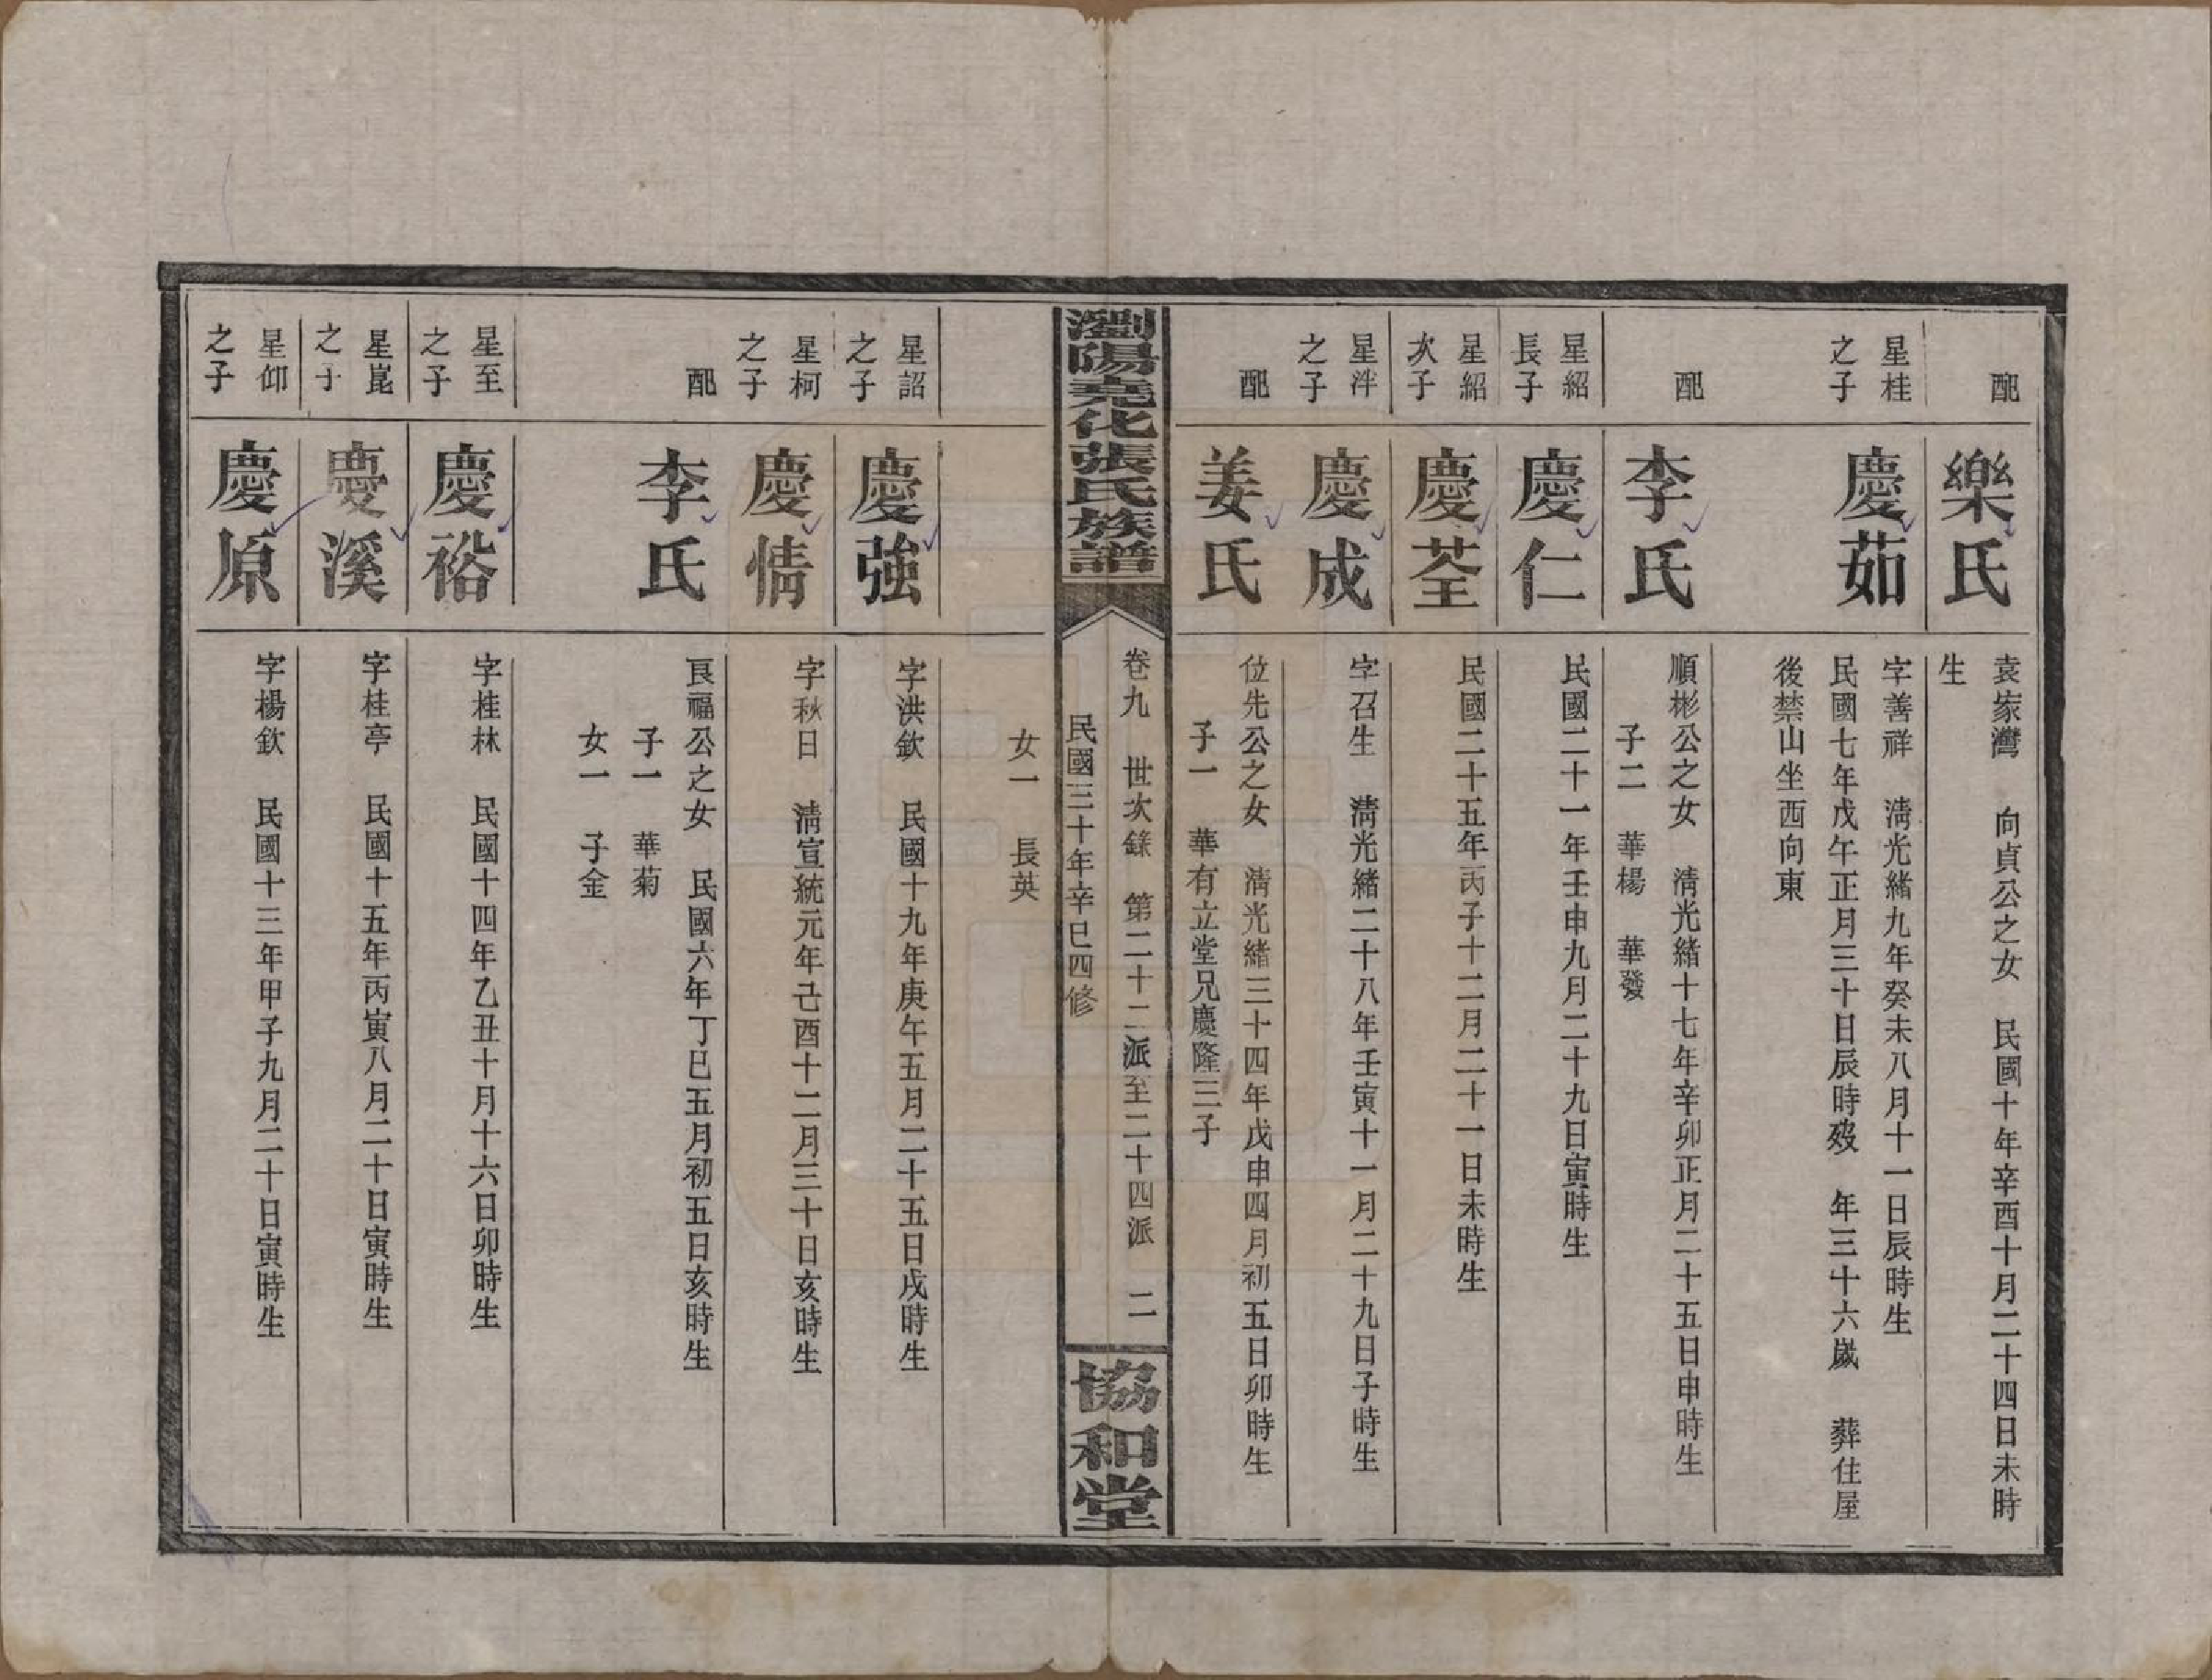 配
樂氏
袁家灣　向貞公之女　民國十年辛酉十月二十四日未時
生
星桂
之子
慶茹
字善祥　淸光緒九年癸未八月十一日辰時生
民國七年戊午正月三十日辰時歿　年三十六歲　葬住屋
後禁山坐西向東
配
李氏
順彬公之女　淸光緒十七年辛卯正月二十五日申時生
子二　華楊　華發
星紹
長子
慶仁
民國二十一年壬申九月二十九日寅時生
星紹
次子
慶荃
民國二十五年丙子十二月二十一日未時生
星泮
之子
慶成
字召生　淸光緒二十八年壬寅十一月二十九日子時生
配
姜氏
位先公之女　淸光緒三十四年戊申四月初五日卯時生
子一　華有立堂兄慶隆三子
瀏陽堯化張氏族譜
卷九　世次錄　第二十二派至二十四派　二
民國三十年辛巳四修
協和堂
女一　長英
星詔
之子
慶強
字洪欽　民國十九年庚午五月二十五日戌時生
星柯
之子
慶情
字秋日　淸宣統元年己酉十二月三十日亥時生
配
李氏
良福公之女　民國六年丁巳五月初五日亥時生
子一　華菊
女一　子金
星至
之子
慶裕
字桂林　民國十四年乙丑十月十六日卯時生
星崑
之子
慶溪
字桂亭　民國十五年丙寅八月二十日寅時生
星仰
之子
慶原
字楊欽　民國十三年甲子九月二十日寅時生